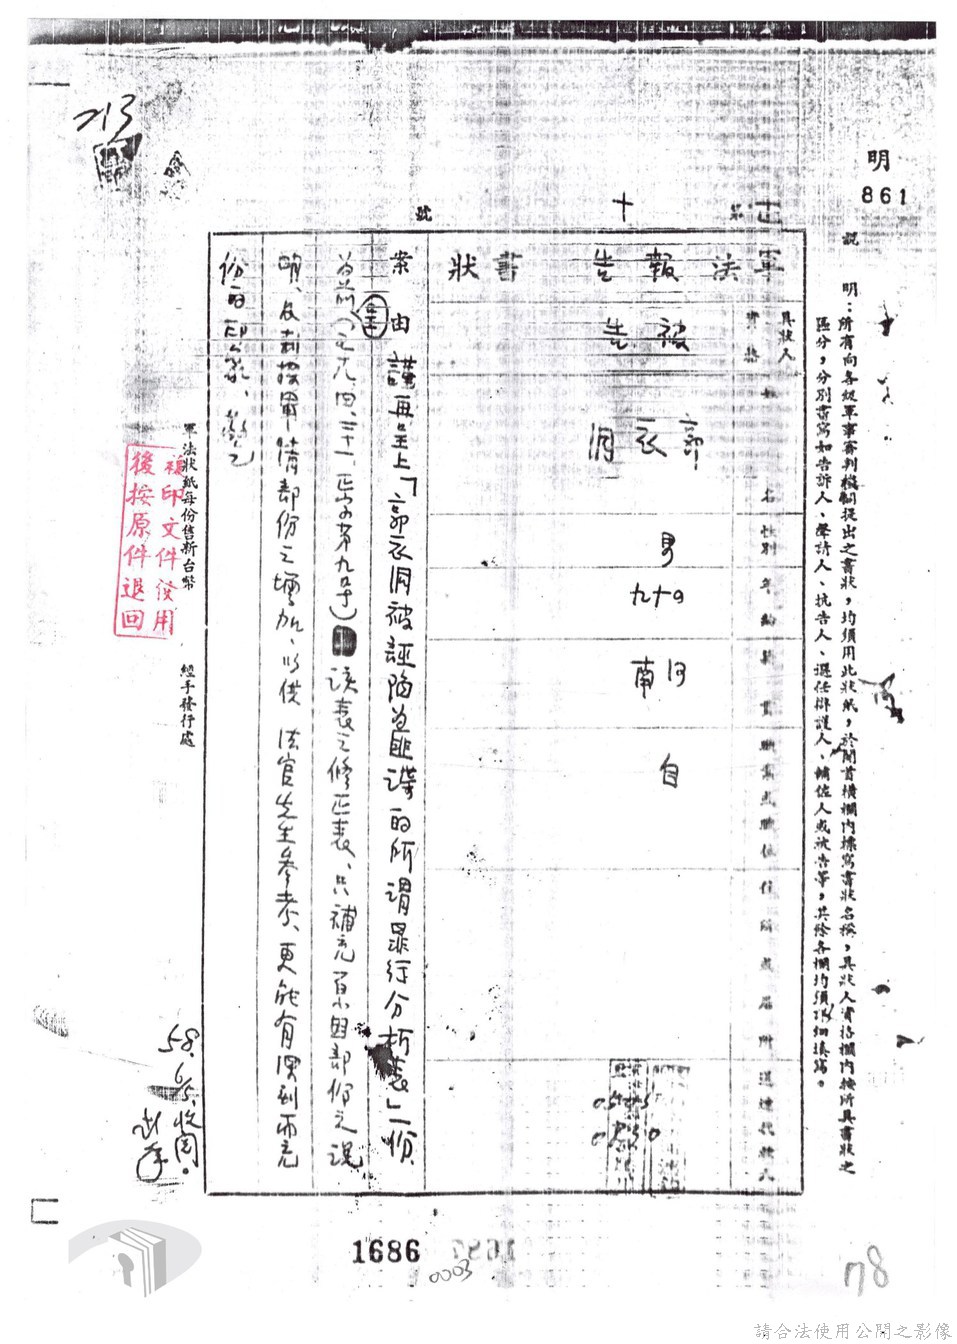 213
明
861
說
明：所有向各級軍事審判機關提出之書狀，均須用此狀紙，於開首橫欄內標寫書狀名稱，具狀人資格欄內按所具書狀之
區分，分別書寫如告訴人、聲請人、抗告人、選任辯護人、輔佐人或被告等，其餘各欄均須詳細填寫。
第 十 號
軍法報告書狀
具狀人
資格
被告
姓名
郭衣洞
性別
男
年齡
四十九
籍貫
河南
職業或職位
自
住所或居所
送達代收人
案由
謹再呈上「郭衣洞被誣陷為匪諜的所謂罪行分析表」一份
為前（五九、四、二十一、
第九号）該表之修正表、只補充
部份之說
明、及刺探軍情部份之增加、以供 法官先生參考、更能有深刻而充
份的印象、
軍法狀紙每份售新台幣
經手發行處
複印文件使用
後按原件退回
58.6/5.收閱。
1686
0003
78
請合法使用公開之影像